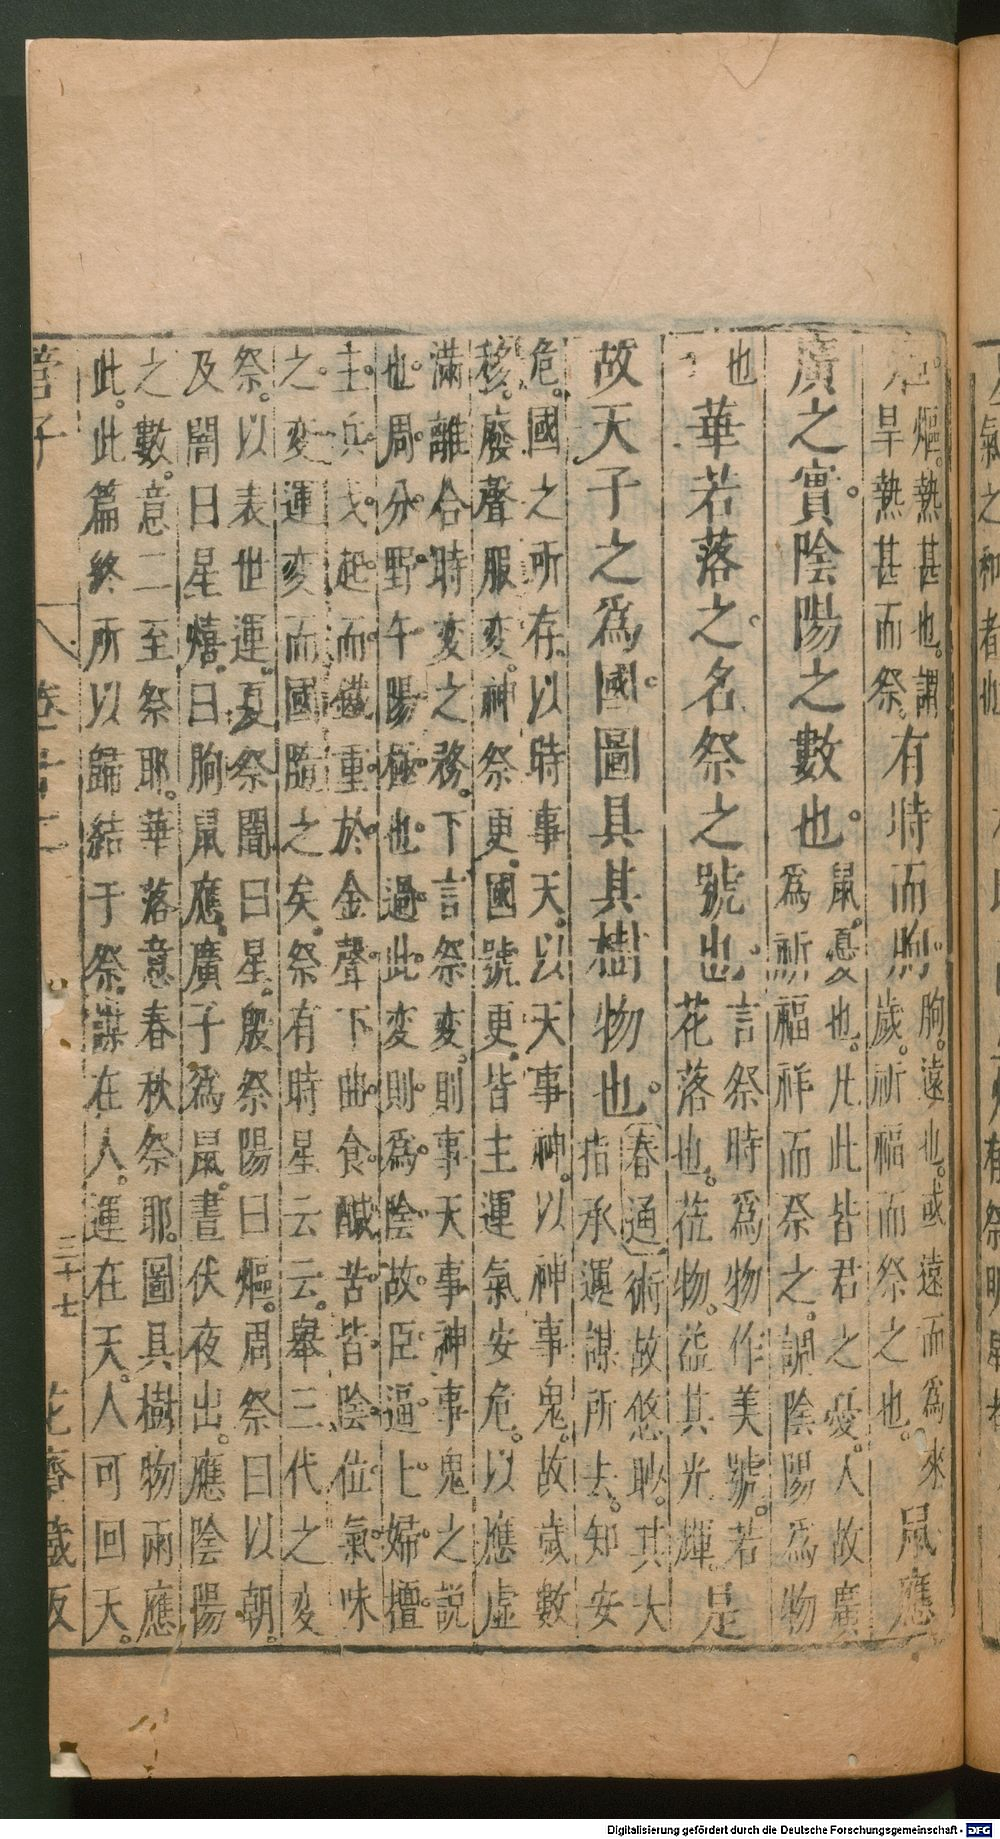 氣之和者也
熰。熱甚也。謂
旱熱甚而祭。
有時而朐。
朐。遠也。或遠而為來
歲。祈福而祭之也。
鼠應
廣之實。陰陽之數也。
鼠。憂也。凡此皆君之憂。人故廣
為祈福祥而祭之。謂陰陽為物
也
華若落之。名祭之號也。
言祭時為物作美號。若
花落也。花物。益其光輝
是
故天子之爲國。圖具其樹物也。
春通術故悠眇。其大
指承運謀所去。知安
危。國之所存。以時事天。以天事神。以神事鬼。故歲數
移。廢聲服変。神祭更。國號更。皆主運氣安危。以應虛
滿離合時変之務。下言祭変。則事天事神事鬼之説
也。周。分。野。午。陽。極。也。過。此。変。則。為。陰。故。臣。逼。上。婦。擅。
主。兵。戈。起。而。鐵。重。於。金。聲。下曲。食。鹹苦。皆。陰。位。氣。味
之。変運変而國隨之矣。祭有時星云云。舉三代之変
祭。以表世運。夏祭闇曰星。殷祭陽曰熰。周祭曰以朝。
及闇曰星熺。曰朐鼠應。廣子為鼠。晝伏夜出。應陰陽
之數。意二至祭耶。華落意春秋祭耶。圖具樹物兩應
此。此篇終所以歸結于祭。謀在人。運在天。人可回天。
管子 卷十二 三十七 花齋藏板
Digitalisierung gefördert durch die Deutsche Forschungsgemeinschaft - DFG